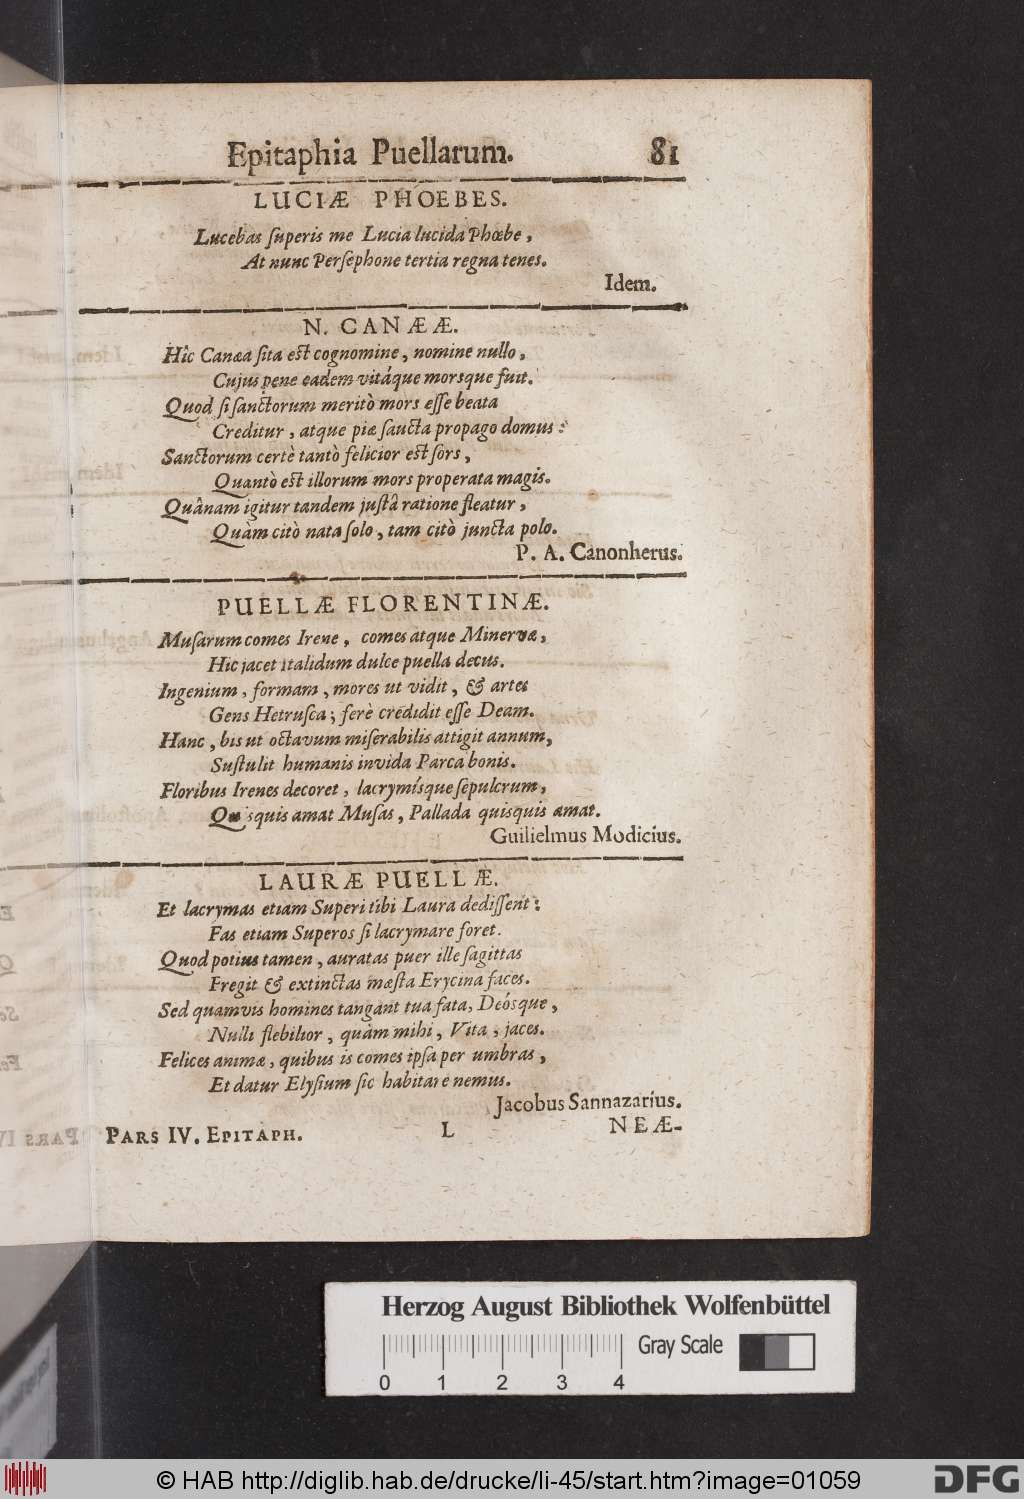 Epitaphia Puellarum. 81
LUCIÆ PHOEBES.
Lucebas ſuperis me Lucia lucida Phœbe,
At nunc Perſephone tertia regna tenes.
Idem.
N. CANÆÆ.
Hîc Canæa ſita est cognomine, nomine nullo,
Cujus pene eadem vitáque morsque fuit.
Quod ſi ſanctorum meritò mors eſſe beata
Creditur, atque piæ ſancta propago domus:
Sanctorum certè tantò felicior est ſors,
Quantò est illorum mors properata magis.
Quânam igitur tandem juſtâ ratione fleatur,
Quàm citò nata ſolo, tam citò juncta polo.
P. A. Canonherus.
PUELLÆ FLORENTINÆ.
Muſarum comes Irene, comes atque Minervæ,
Hic jacet Italidum dulce puella decus.
Ingenium, formam, mores ut vidit, & artes
Gens Hetruſca; ferè credidit eſſe Deam.
Hanc, bis ut octavum miſerabilis attigit annum,
Suſtulit humanis invida Parca bonis.
Floribus Irenes decoret, lacrymísque ſepulcrum,
Quisquis amat Muſas, Pallada quisquis amat.
Guilielmus Modicius.
LAURÆ PUELLÆ.
Et lacrymas etiam Superi tibi Laura dediſſent:
Fas etiam Superos ſi lacrymare foret.
Quod potius tamen, auratas puer ille ſagittas
Fregit & extinctas mæſta Erycina faces.
Sed quamvis homines tangant tua fata, Deósque,
Nulli flebilior, quàm mihi, Vita, jaces.
Felices animæ, quibus is comes ipſa per umbras,
Et datur Elyſium ſic habitare nemus.
Jacobus Sannazarius.
PARS IV. EPITAPH. L NEÆ-
Herzog August Bibliothek Wolfenbüttel
Gray Scale
0 1 2 3 4
© HAB http://diglib.hab.de/drucke/li-45/start.htm?image=01059
DFG